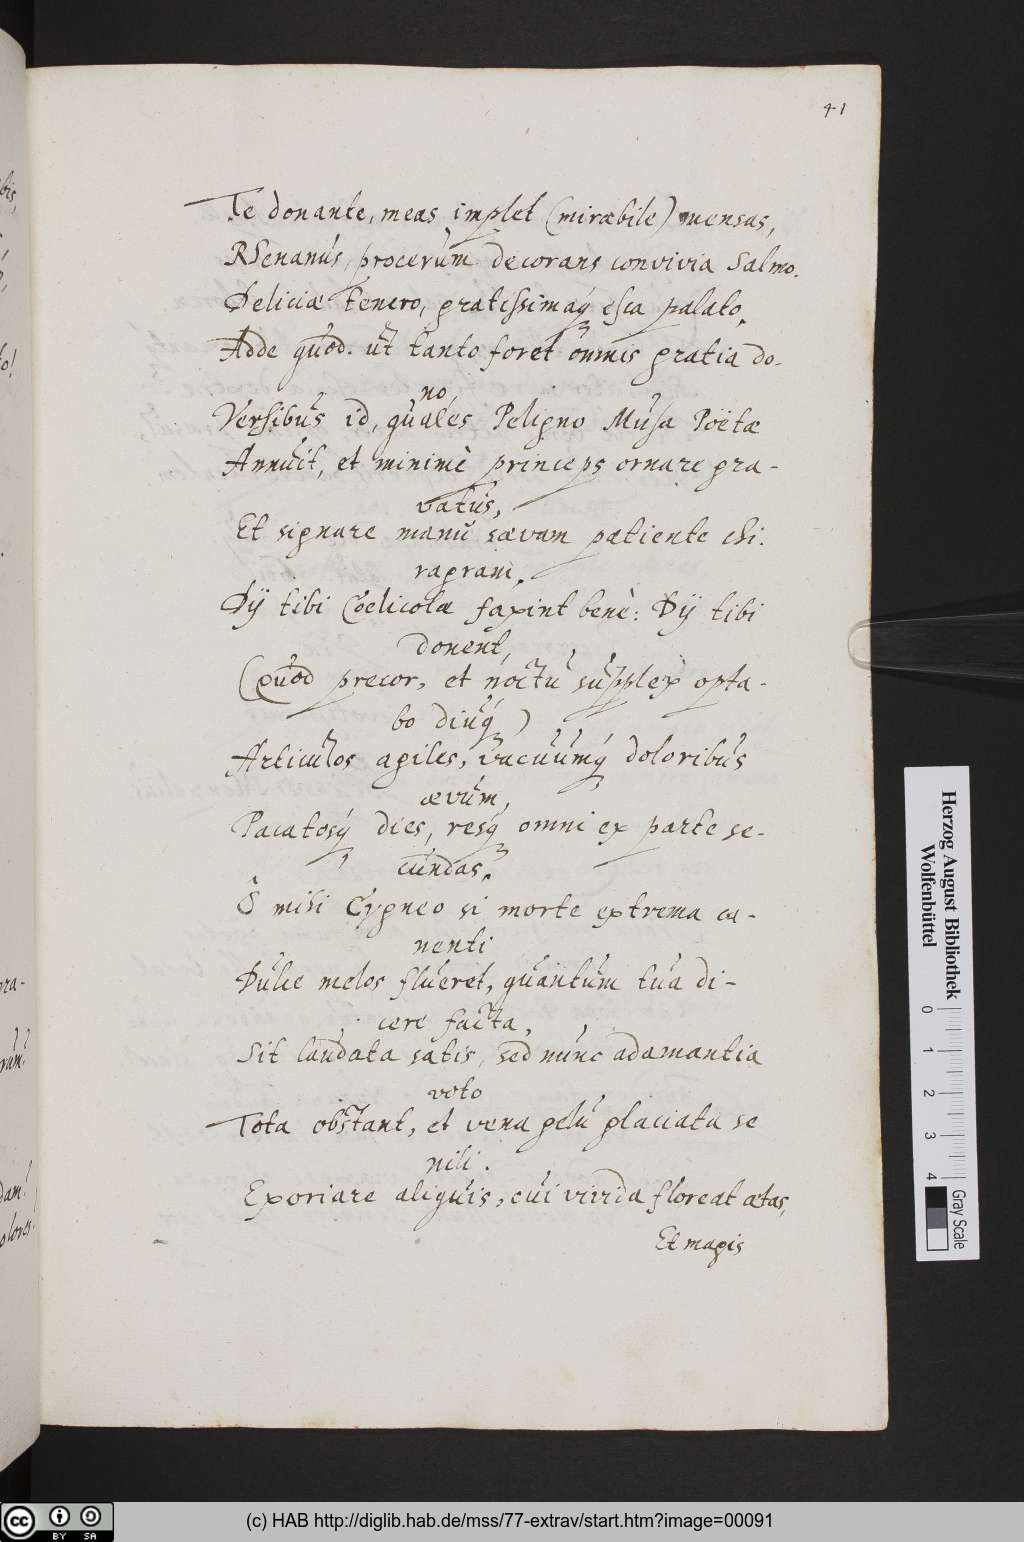 41
Te donante, meas implet (mirabile) mensas,
Rhenanus, procerum decorans convivia Salmo.
Deliciæ tenero, gratissimaq́ esca palato.
Adde quòd. ut tanto foret omnis gratia do-
no,
Versibus id, quales Peligno Musa Poëtæ
Annuit, et minimè princeps ornare gra-
vatus,
Et signare manu sævam patiente chi-
ragram.
Dij tibi Coelicolæ faxint benè: Dij tibi
donent,
(quod precor, et noctu supplex opta-
bo diuq́)
Articulos agiles, vacuumq́ doloribus
ævum,
Pacatosq́ dies, resq́ omni ex parte se-
cundas.
Ô mihi Cygneo si morte extrema ca-
nenti
Dulce melos flueret, quantum tua di-
cere facta,
Sit laudata satis, sed nunc adamantia
voto
Tota obstant, et vena gelu glaciata se
nili.
Exoriare aliquis, cui vivida floreat ætas,
Et magis
Herzog August Bibliothek
Wolfenbüttel
0 1 2 3 4
Gray Scale
cc BY SA
(c) HAB http://diglib.hab.de/mss/77-extrav/start.htm?image=00091